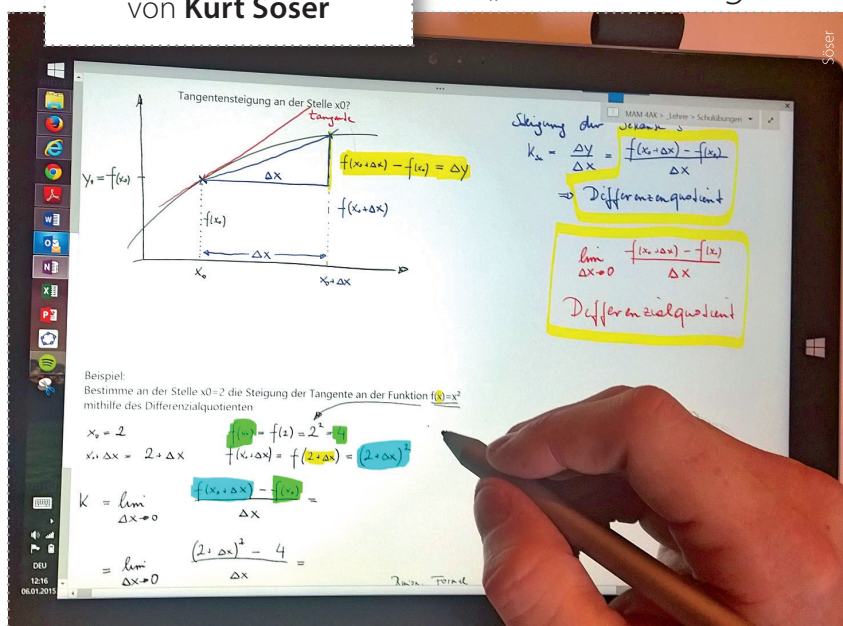 von Kurt Söser
Söser
MAM 4AK > _Lehrer > Schulübungen
Tangentensteigung an der Stelle x0?
tangente
y₀ = f(x₀)
Δx
f(x₀+Δx) - f(x₀) = Δy
f(x₀)
f(x₀+Δx)
Δx
x₀
x₀+Δx
Steigung der Sekante s
= Δy/Δx = (f(x₀+Δx) - f(x₀))/Δx
⇒ Differenzenquotient
lim Δx→0 (f(x₀+Δx) - f(x₀))/Δx
Differenzialquotient
Beispiel:
Bestimme an der Stelle x0=2 die Steigung der Tangente an der Funktion f(x)=x²
mithilfe des Differenzialquotienten
x₀ = 2
f(x₀) = f(2) = 2² = 4
x₀+Δx = 2+Δx
f(x₀+Δx) = f(2+Δx) = (2+Δx)²
K = lim Δx→0 (f(x₀+Δx) - f(x₀))/Δx =
= lim Δx→0 ((2+Δx)² - 4)/Δx =
Formel
DEU
12:16
06.01.2015